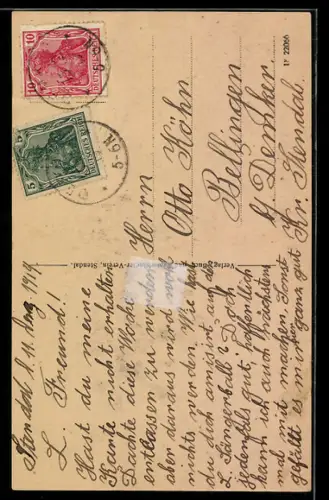 Stendal d. 11. Aug. 1919
L. Freund!
Hast du meine
Karte nicht erhalten
Dachte diese Woche
entlassen zu werden
aber daraus wird noch
nichts werden. Wie hast
du dich amüsiert auf
L. Sängerball? Doch
jedenfalls gut, hoffentlich
kann ich auch nächstens
mal mit machen. Sonst
gefällt es mir hier ganz gut
Verein, Stendal.
Herrn
Otto Köhn
Bellingen
b/ Demker
Kr. Stendal.
10
DEUTSCHES REICH
5 5
DEUTSCHES REICH
22056